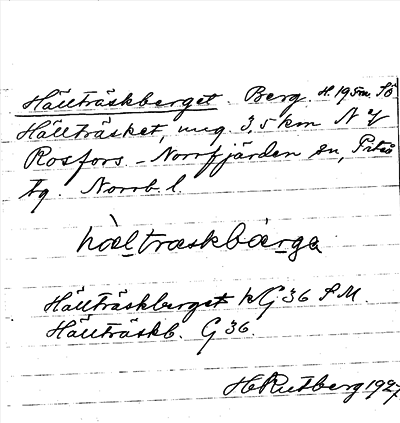 Hällträskberget. Berg. H. 195m. Sö
Hällträsket, ung. 3,5 km N of
Rosfors - Norrfjärden sn, Piteå
tg. Norrb. l.
hä̀l træskbærga
Hällträskberget kG 36 S.M.
Hällträskb. G 36.
H Rutberg 1927